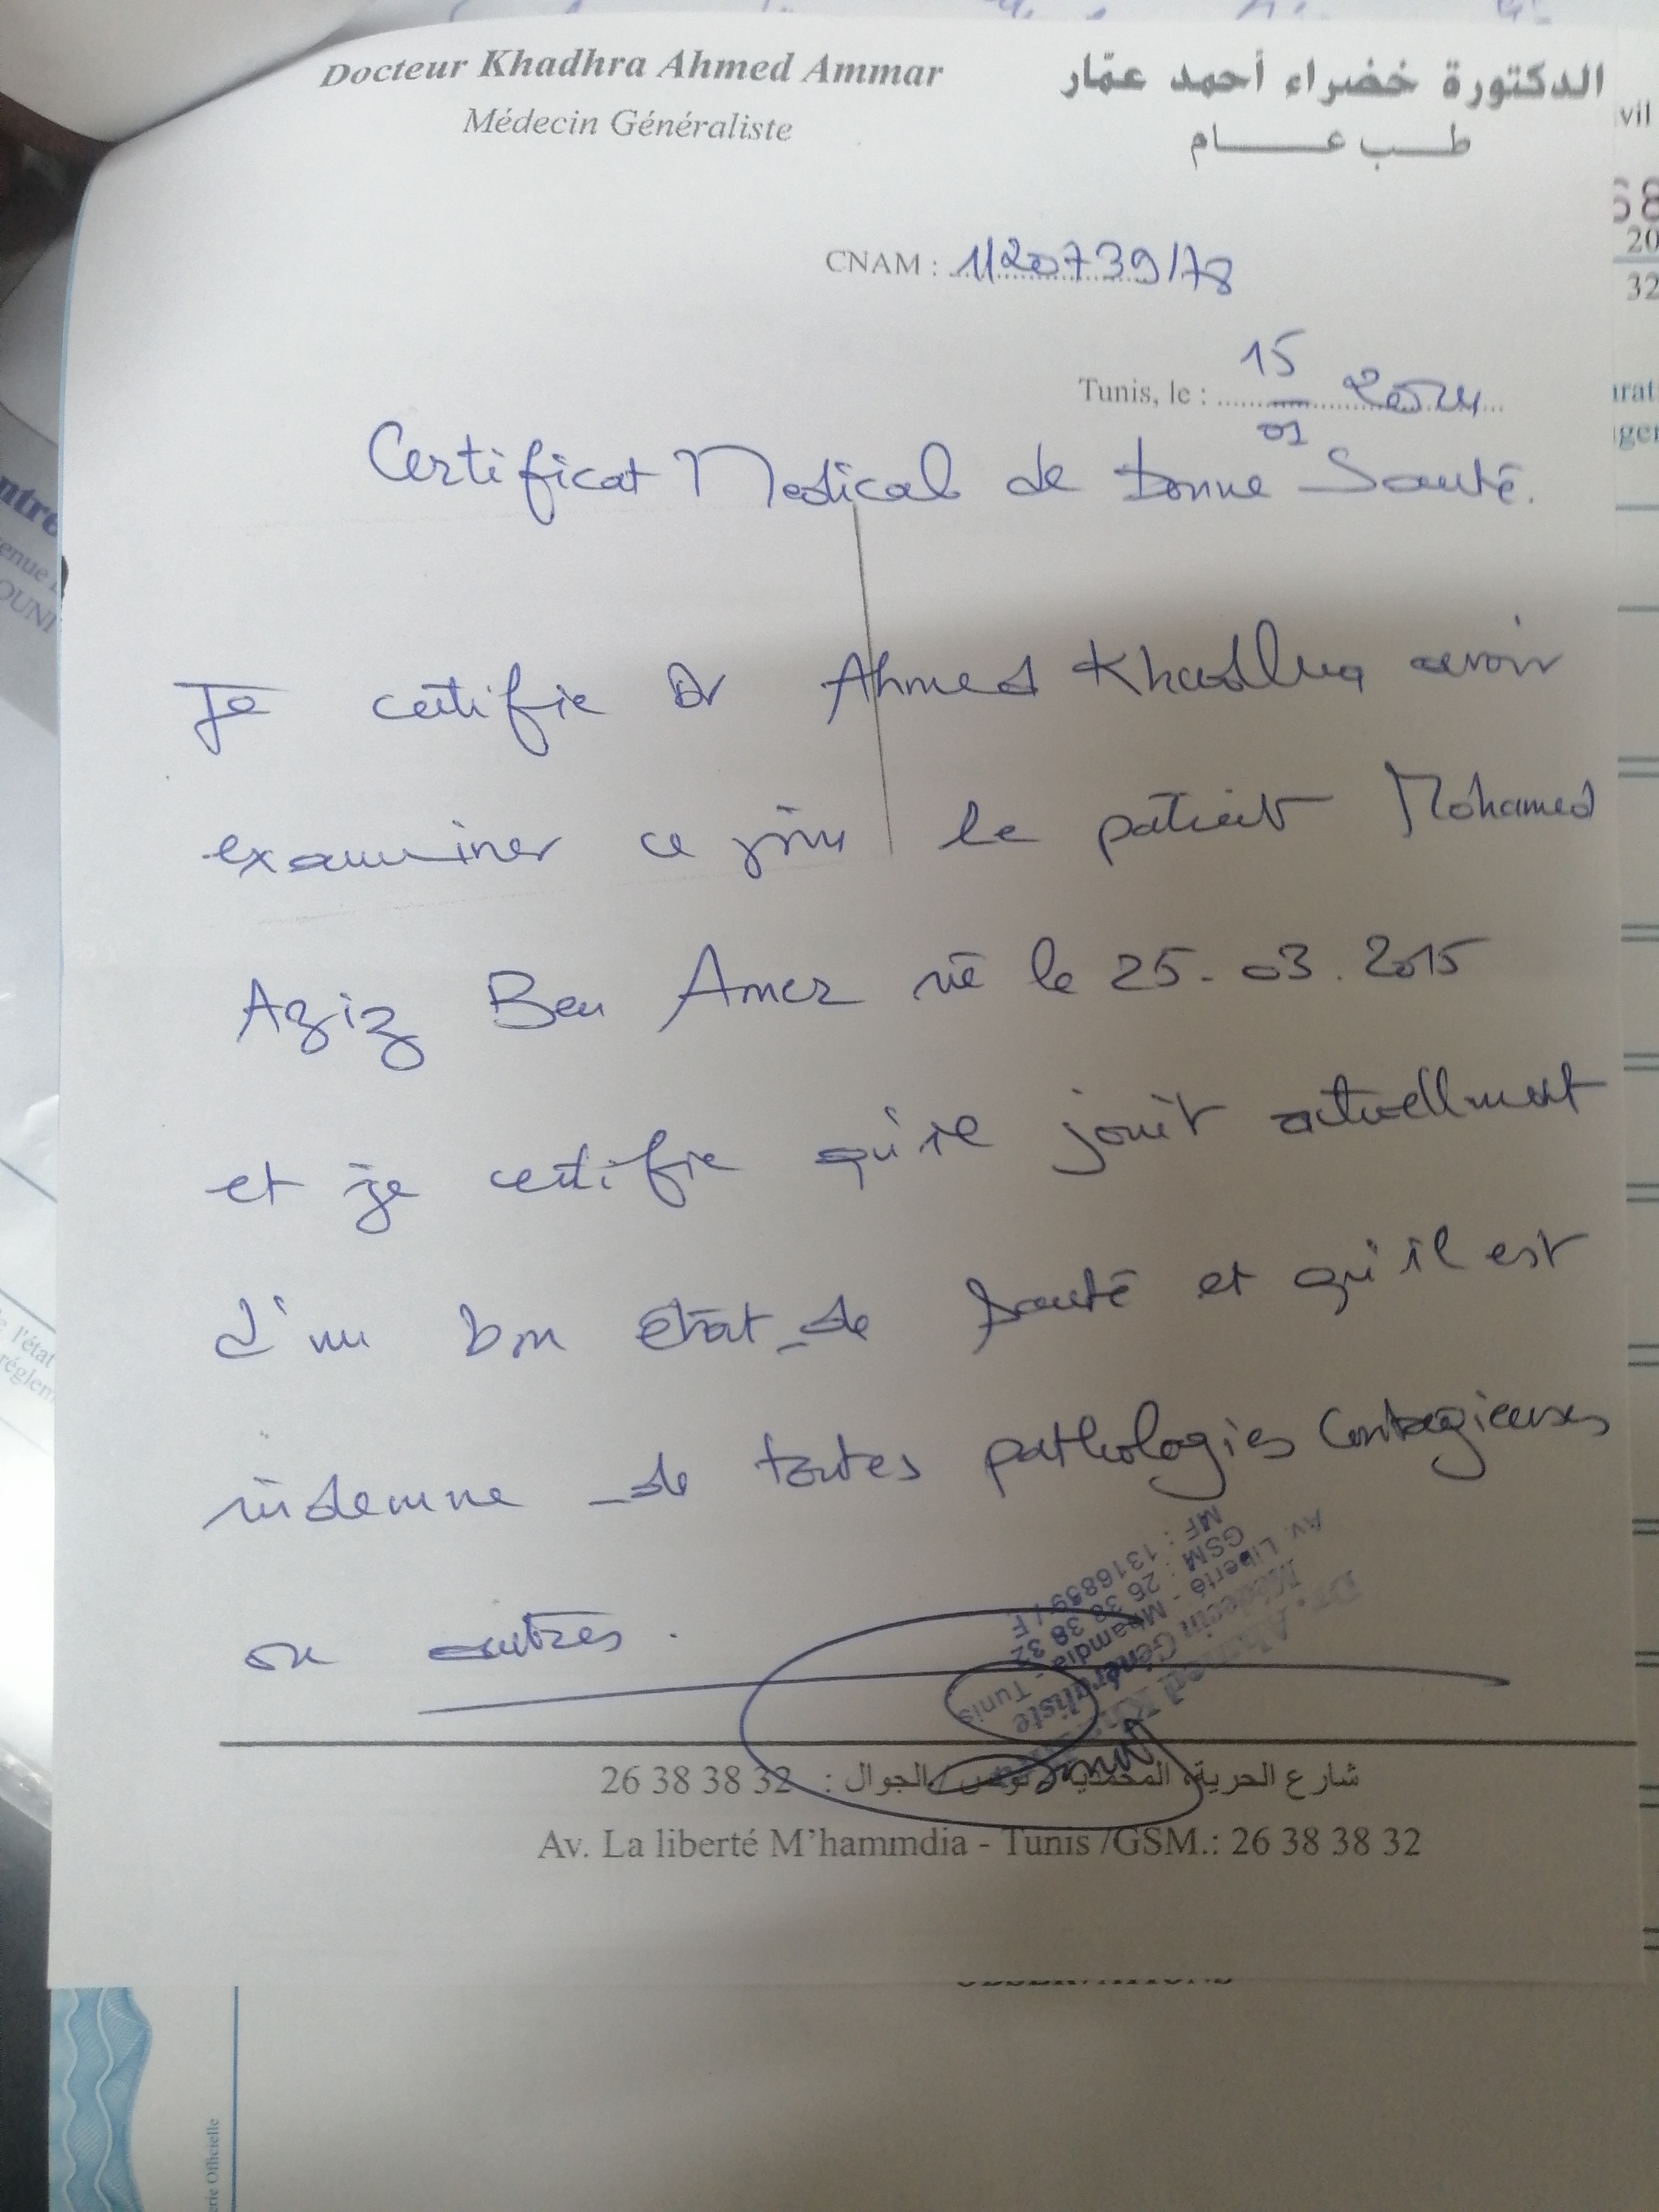 Docteur Khadhra Ahmed Ammar
الدكتورة خضراء أحمد عمّار
Médecin Généraliste
طب عام
CNAM : 1/20739/78
Tunis, le : 15/01 2024
Certificat Medical de bonne Santé.
Je certifie Dr Ahmed Khadhra avoir
examiner ce jour le patient Mohamed
Aziz Ben Amer né le 25-03.2015
et je certifie qu'il jouit actuellement
d'un bon état de santé et qu'il est
indemne de toutes pathologies contagieuses
ou autres.
Dr. Ahmed
Médecin Généraliste
Av. Liberté - Mhamdia - Tunis
GSM : 26 38 38 32
MF : 1316859 / F
شارع الحرية المحمدية تونس / الجوال : 26 38 38 32
Av. La liberté M'hammdia - Tunis /GSM.: 26 38 38 32
vil
68
20
32
ntre
enue
OUNI
l'état
réglem
erie Officielle